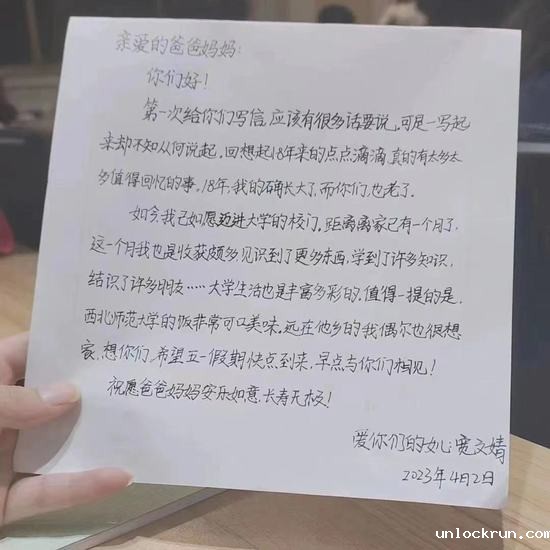 亲爱的爸爸妈妈:
你们好!
第一次给你们写信,应该有很多话要说,可是一写起
来却不知从何说起,回想起18年来的点点滴滴,真的有太多太
多值得回忆的事。18年,我的确长大了,而你们,也老了。
如今,我已如愿迈进大学的校门。距离离家已有一个月了,
这一个月我也是收获颇多,见识到了更多东西,学到了许多知识,
结识了许多朋友……大学生活也是丰富多彩的。值得一提的是,
西北师范大学的饭非常可口美味。远在他乡的我偶尔也很想
家、想你们,希望五一假期快点到来,早点与你们相见!
祝愿爸爸妈妈安乐如意,长寿无极!
爱你们的女儿:文婧
2023年4月2日
unlockrun.com